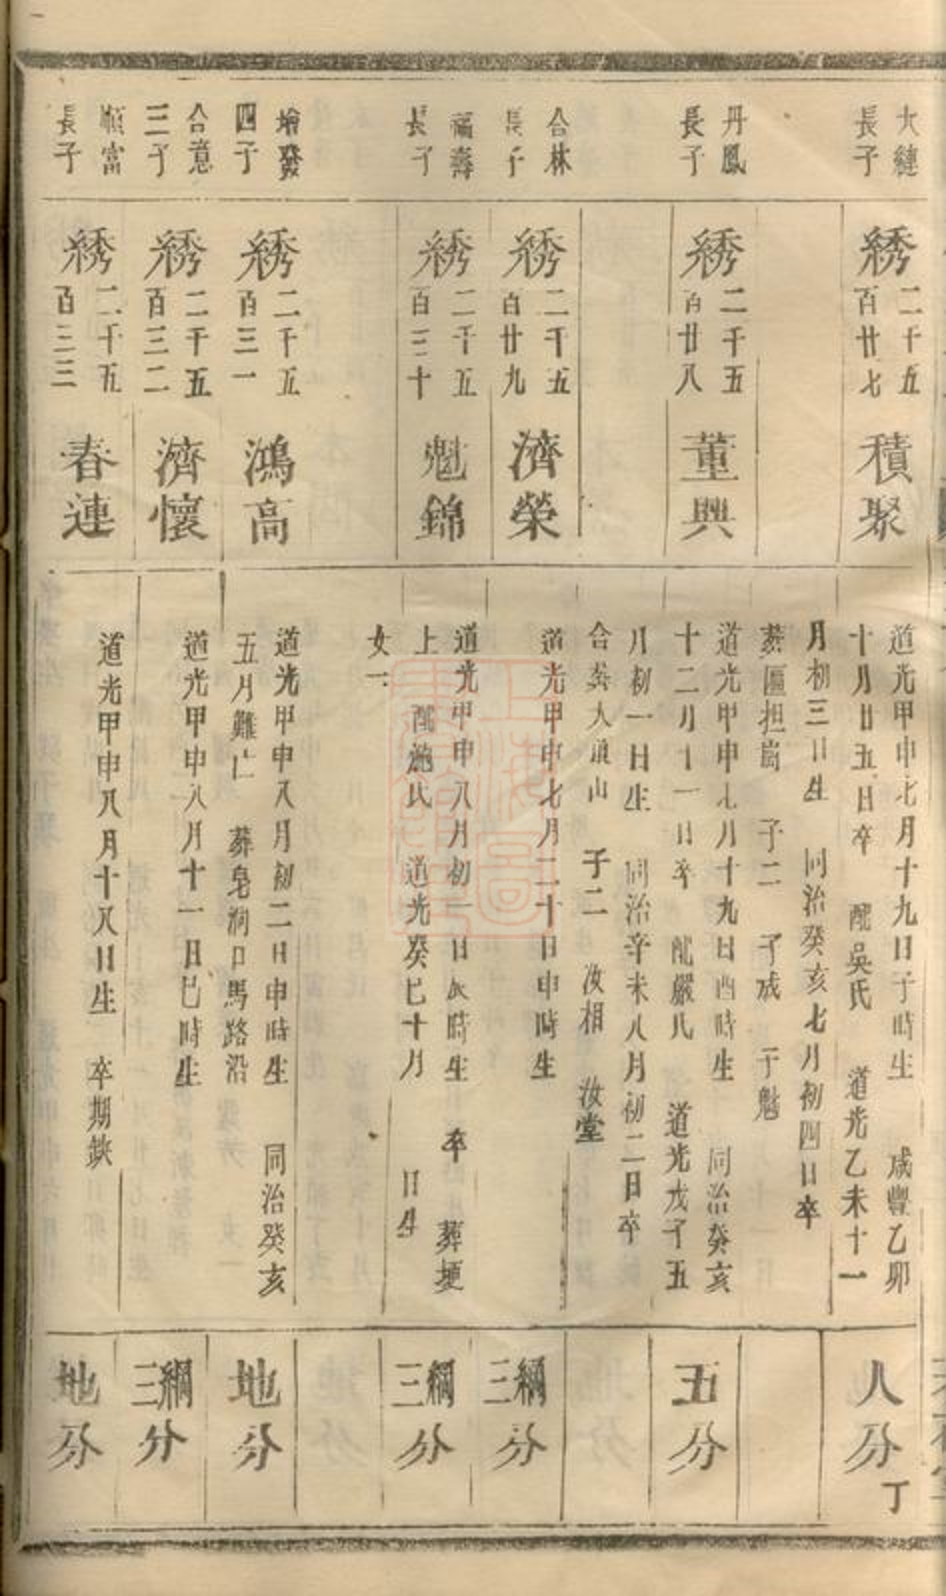 大縺
長子
綉
二千五
百廿七
積聚
道光甲申七月十九日子時生 咸豐乙卯
十月廿五日卒 配吳氏 道光乙未十一
月初三日生 同治癸亥七月初四日卒
葬匾担崗 子二 子成 子魁
人分
丁
丹鳳
長子
綉
二千五
百廿八
董興
道光甲申七月十九日酉時生 同治癸亥
十二月十一日卒 配嚴氏 道光戊子五
月初一日生 同治辛未八月初二日卒
合葬大頂山 子二 汝相 汝堂
五分
合林
長子
綉
二千五
百廿九
濟榮
道光甲申七月二十日申時生
三綱分
福壽
長子
綉
二千五
百三十
魁錦
道光甲申八月初一日辰時生 卒 葬埂
上 配施氏 道光癸巳十月 日生
女一
三綱分
增發
四子
綉
二千五
百三一
鴻高
道光甲申八月初二日申時生 同治癸亥
五月難亡 葬皂洞口馬路沿
地分
合意
三子
綉
二千五
百三二
濟懷
道光甲申八月十一日巳時生
三綱分
順富
長子
綉
二千五
百三三
春連
道光甲申八月十八日生 卒期缺
地分
上海圖書館藏